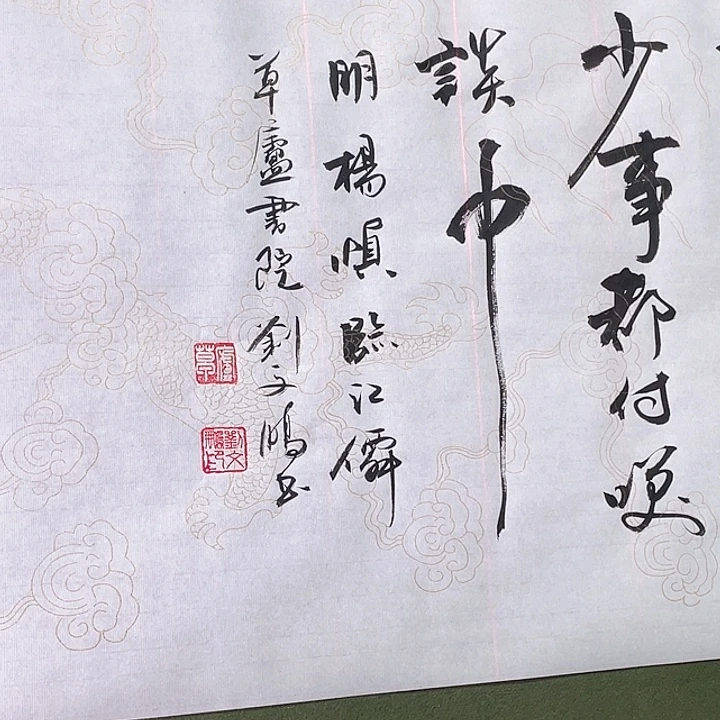 少事都付咲
談中
明楊慎臨江僊
草廬書院劉文鵬书
草廬
劉文鵬印